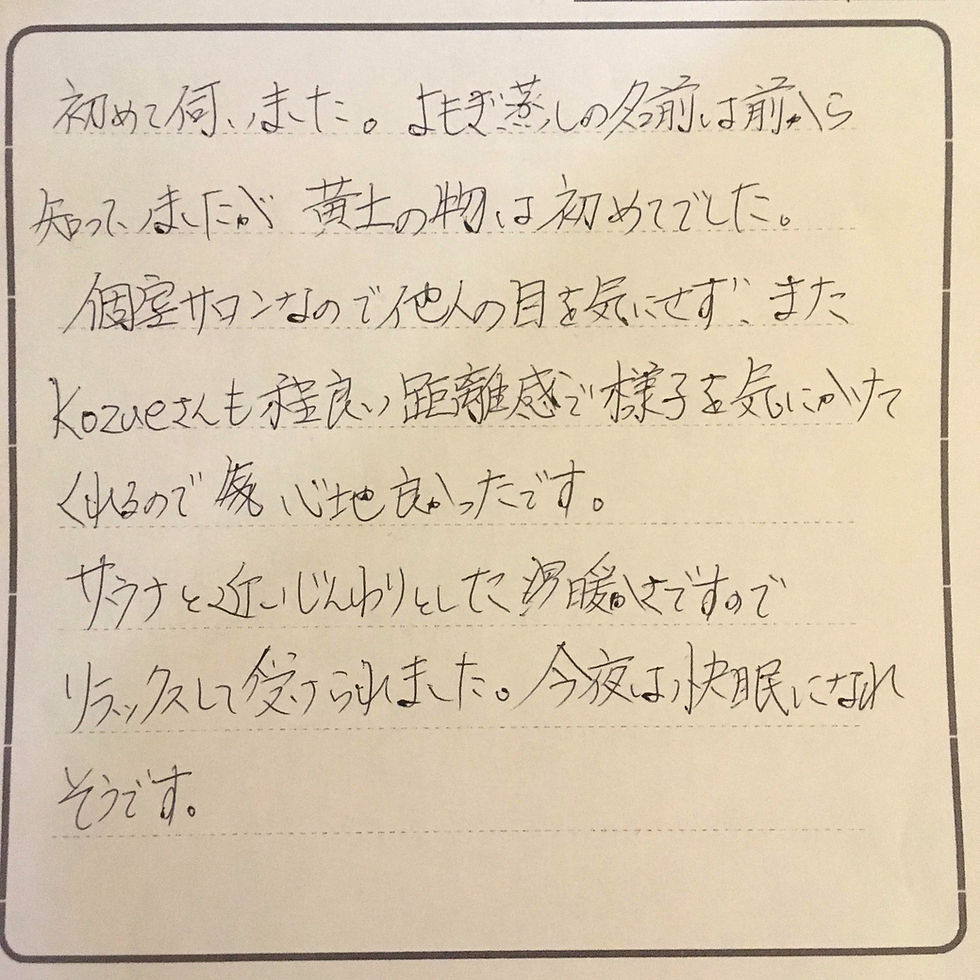 初めて伺いました。よもぎ蒸しの名前は前から
知っていましたが 黄土の物は初めてでした。
個室サロンなので他人の目を気にせず、また
Kozueさんも程良い距離感で様子を気にかけて
くれるので 心地良かったです。
サウナと近いじんわりとした 暖かさですので
リラックスして受けられました。今夜は快眠になれ
そうです。